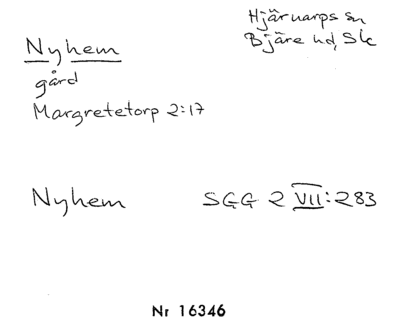 Hjärnarps sn
Nyhem Bjäre hd, Sk
gård
Margretetorp 2:17
Nyhem SGG 2 VII:283
Nr 16346